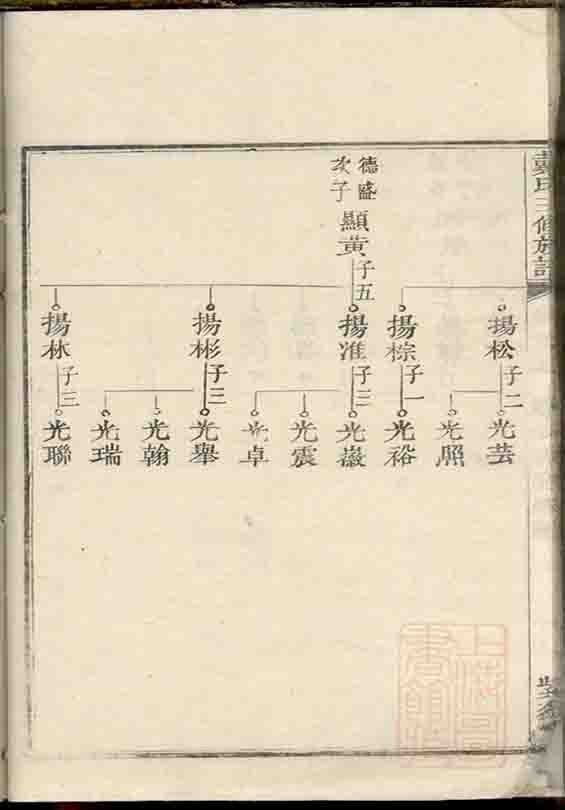 戴氏三修族譜
德盛
次子
顯黃
子五
揚松
子二
光芸
光照
揚棕
子一
光裕
揚准
子三
光嶽
光震
光卓
揚彬
子三
光舉
光翰
光瑞
揚林
子三
光聯
上海圖
書館藏